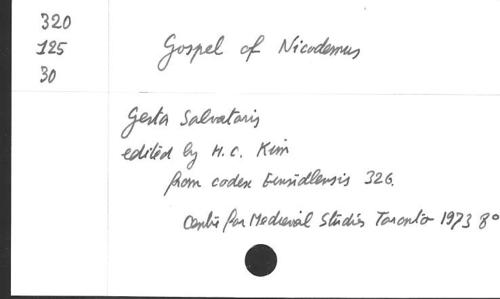 320
125
30
Gospel of Nicodemus
Gesta Salvatoris
edited by H. C. Kim
from codex Einsidlensis 326.
Centre for Medieval Studies Toronto 1973 8°